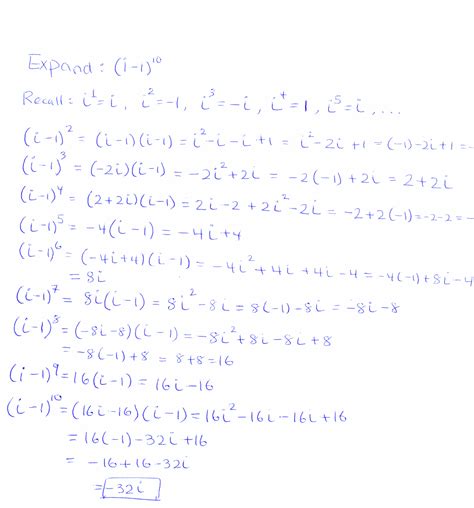 Expand: (i-1)¹⁰
Recall: i¹=i, i²=-1, i³=-i, i⁴=1, i⁵=i, ...
(i-1)² = (i-1)(i-1) = i²-i-i+1 = i²-2i+1 = (-1)-2i+1 = -
(i-1)³ = (-2i)(i-1) = -2i²+2i = -2(-1)+2i = 2+2i
(i-1)⁴ = (2+2i)(i-1) = 2i-2+2i²-2i = -2+2(-1) = -2-2 = -
(i-1)⁵ = -4(i-1) = -4i+4
(i-1)⁶ = (-4i+4)(i-1) = -4i²+4i+4i-4 = -4(-1)+8i-4
= 8i
(i-1)⁷ = 8i(i-1) = 8i²-8i = 8(-1)-8i = -8i-8
(i-1)⁸ = (-8i-8)(i-1) = -8i²+8i-8i+8
= -8(-1)+8 = 8+8 = 16
(i-1)⁹ = 16(i-1) = 16i-16
(i-1)¹⁰ = (16i-16)(i-1) = 16i²-16i-16i+16
= 16(-1)-32i+16
= -16+16-32i
= -32i